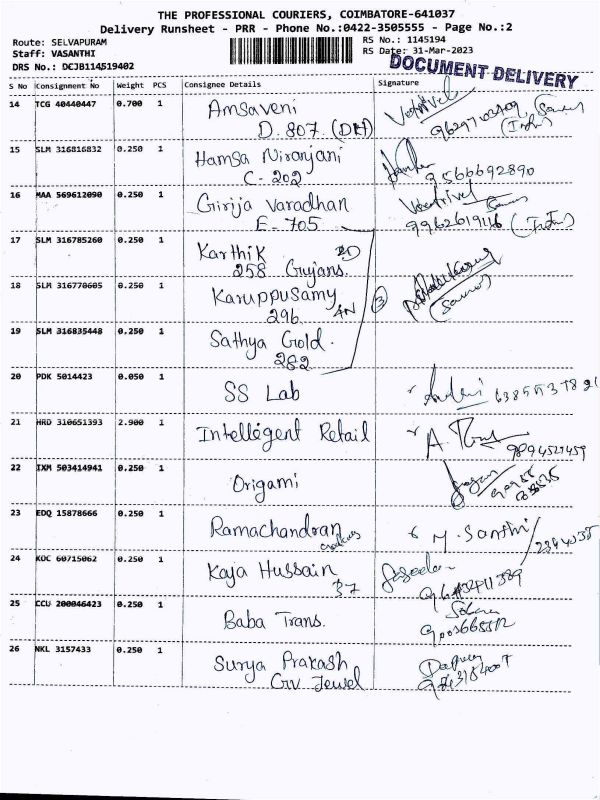 THE PROFESSIONAL COURIERS, COIMBATORE-641037
Delivery Runsheet - PRR - Phone No.:0422-3505555 - Page No.:2
Route: SELVAPURAM
Staff: VASANTHI
DRS No.: DCJB114519402
RS No.: 1145194
RS Date: 31-Mar-2023
DOCUMENT DELIVERY
S No Consignment No Weight PCS Consignee Details Signature
14 TCG 40440447 0.700 1 Amsaveni Vetrivel
D. 807
15 SLM 316816832 0.250 1 Hamsa Niranjani
C-202 9566692890
16 MAA 569612090 0.250 1 Girija Varadhan
E-705 9962619116
17 SLM 316785260 0.250 1 Karthik
258 Gujans.
18 SLM 316770605 0.250 1 Karuppusamy
296 4N 3
19 SLM 316835448 0.250 1 Sathya Gold.
282
20 PDK 5014423 0.050 1 SS Lab
21 HRD 310651393 2.900 1 Intellegent Retail
22 IXM 503414941 0.250 1 Origami
23 EDQ 15878666 0.250 1 Ramachandran M. Santhi
24 KOC 60715062 0.250 1 Kaja Hussain
37
25 CCU 200046423 0.250 1 Baba Trans.
26 NKL 3157433 0.250 1 Surya Prakash
GV Jewel